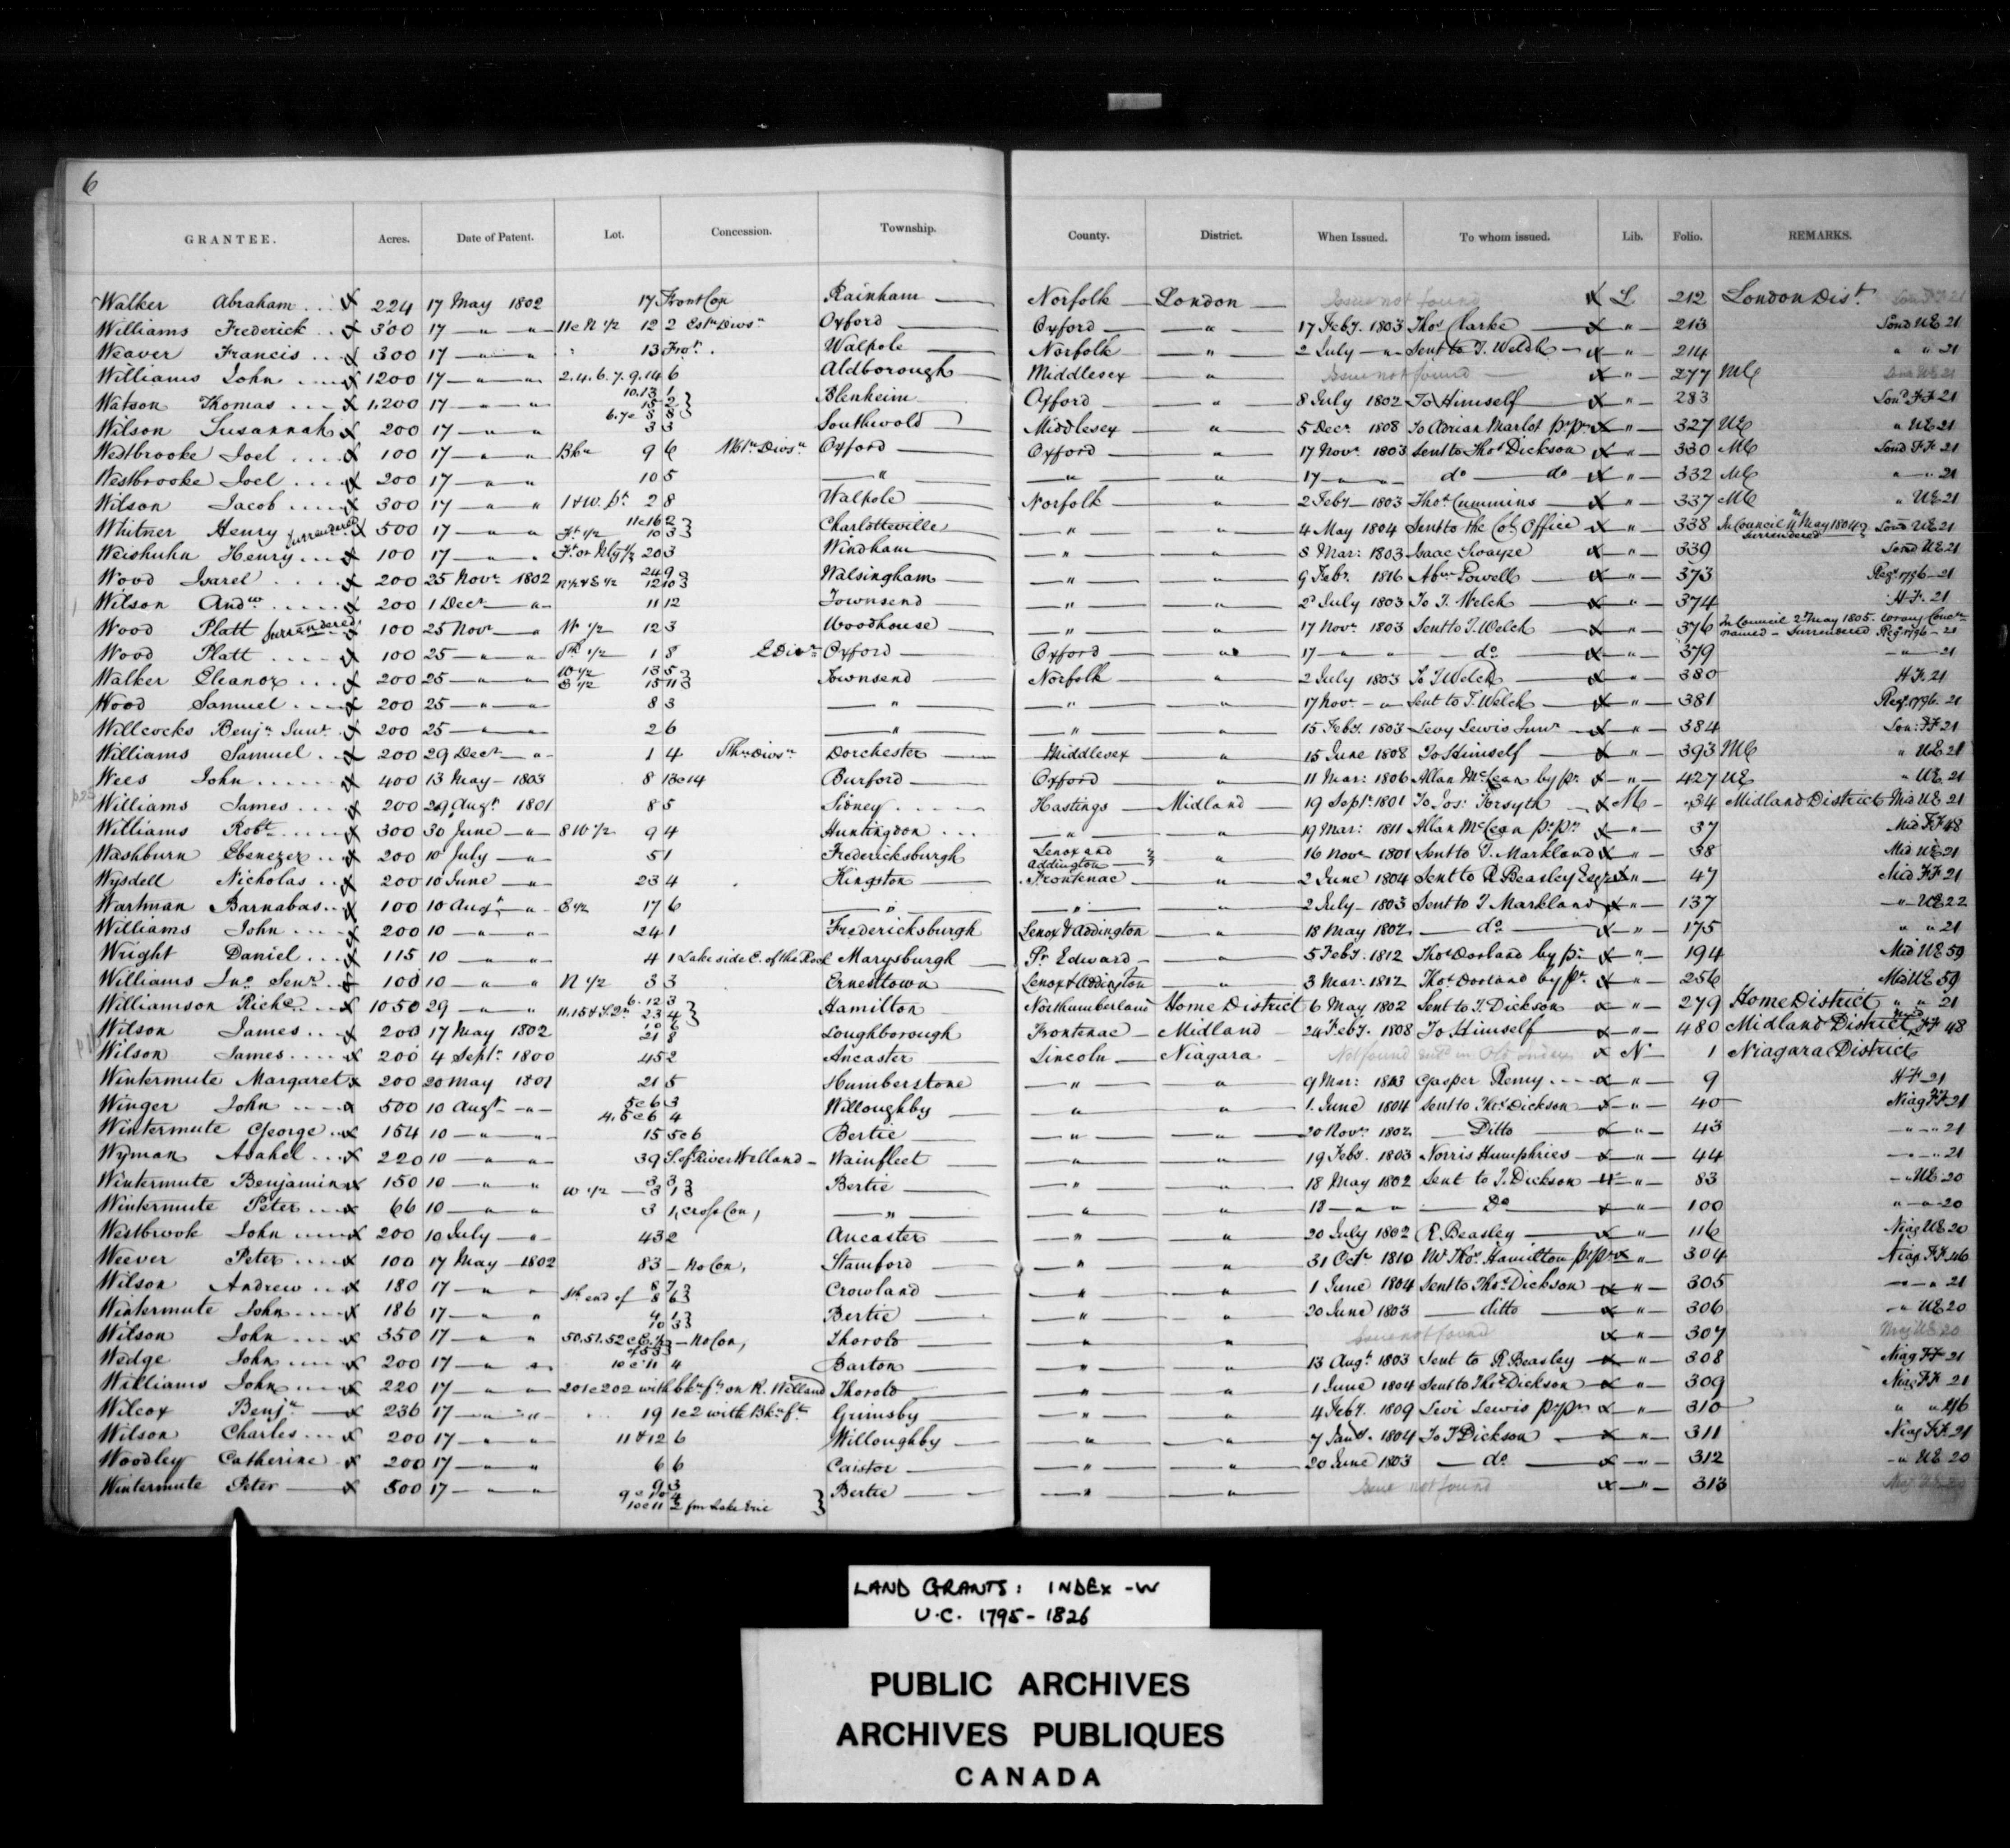 6
GRANTEE. Acres. Date of Patent. Lot. Concession. Township. County. District. When Issued. To whom issued. Lib. Folio. REMARKS.
Walker Abraham 224 17 May 1802 17 Front Con Rainham Norfolk London Issue not found L 212 London Dist.
Williams Frederick 300 17 " " 11 e N 1/2 12 2 Estn Divsn Oxford Oxford " 17 Feby. 1803 Thos Clarke " 213 Lond UE 21
Weaver Francis 300 17 " " 13 Frot. Walpole Norfolk " 2 July " Sent to T. Welch " 214 " " 21
Williams John 1200 17 " " 2.4.6.7.9.14 6 Aldborough Middlesex " Issue not found " 277 ME
Watson Thomas 1,200 17 " " 10.13 1 15 2 6.7 e 8 8 } Blenheim Oxford " 8 July 1802 To Himself " 283 Lond FF 21
Wilson Susannah 200 17 " " 3 3 Southwold Middlesex " 5 Decr. 1808 To Adrian Marlet pr pr " 327 UE " UE 21
Westbrooke Joel 100 17 " " Bkn 9 6 Wstn Divsn Oxford Oxford " 17 Novr. 1803 Sent to Thos Dickson " 330 ME Lond FF 21
Westbrooke Joel 200 17 " " 10 5 " " " 17 " " do do " 332 ME " " 21
Wilson Jacob 300 17 " " 1 & W. pt 2 8 Walpole Norfolk " 2 Feby 1803 Thos Cummins " 337 ME " UE 21
Whitner Henry surrendered 500 17 " " 11 e 16 2 Ft 1/2 10 3 } Charlotteville " " 4 May 1804 Sent to the Col Office " 338 In Council 11th May 1804 surrendered Lond UE 21
Weishuhn Henry 100 17 " " 20 3 Windham " " 8 Mar: 1803 Isaac Swayze " 339 Lond UE 21
Wood Isarel 200 25 Novr 1802 24 9 N 1/2 & S 1/2 12 10 } Walsingham " " 9 Feby. 1816 Abm Powell " 373 Regn 1796 21
Wilson Andw 200 1 Decr " 11 12 Townsend " " 2d July 1803 To T. Welch " 374 H.F. 21
Wood Platt surrendered 100 25 Novr " W 1/2 12 3 Woodhouse " " 17 Novr 1803 Sent to T. Welch " 376 In Council 2nd May 1805. wrong Concn named - Surrendered Regn 1796 - 21
Wood Platt 100 25 " " Sth 1/2 1 8 E Divn Oxford Oxford " 17 " " do " 379 " 21
Walker Eleanor 200 25 " " W 1/2 13 5 S 1/2 15 11 } Townsend Norfolk " 2 July 1803 To T Welch " 380 H.F. 21
Wood Samuel 200 25 " " 8 3 " " " 17 Novr " Sent to T. Welch " 381 Regn 1796. 21
Willcocks Benjn Junr. 200 25 " 2 6 " " " 15 Feby. 1803 Levy Lewis Junr " 384 Lon: FF 21
Williams Samuel 200 29 Decr " 1 4 Sthn Divsn Dorchester Middlesex " 15 June 1808 To Himself " 393 ME " UE 21
Wees John 400 13 May 1803 8 13 e 14 Burford Oxford " 11 Mar: 1806 Allan McLean by pr. " 427 UE " UE 21
Williams James 200 29 Augt 1801 8 5 Sidney Hastings Midland 19 Sept. 1801 To Jos: Forsyth M 34 Midland District Mid UE 21
Williams Robt 300 30 June " 8 W 1/2 9 4 Huntingdon " " 19 Mar: 1811 Allan McLean pr pr " 37 Mid FF 48
Washburn Ebenezer 200 10 July " 5 1 Fredericksburgh Lenox and Addington } " 16 Novr 1801 Sent to T. Markland " 38 Mid UE 21
Wysdell Nicholas 200 10 June " 23 4 Kingston Frontenac " 2 June 1804 Sent to R Beasley Esqr " 47 Mid FF 21
Wartman Barnabas 100 10 Augt " E 1/2 17 6 " " " 2 July 1803 Sent to T Markland " 137 " UE 22
Williams John 200 10 " " 24 1 Fredericksburgh Lenox & Addington " 18 May 1802 do " 175 " " 21
Wright Daniel 115 10 " " 4 1 Lake side E. of the Rock Marysburgh Pr Edward " 5 Feby. 1812 Thos Dorland by pr " 194 Mid UE 59
Williams Jno Senr. 100 10 " " N 1/2 3 3 Ernestown Lenox & Addington " 3 Mar: 1812 Thos Dorland by pr. " 256 Mid UE 59
Williamson Richd 1050 29 " " 6. 12 3 23 4 } Hamilton Northumberland Home District 6 May 1802 Sent to T. Dickson " 279 Home District " " 21
Wilson James 200 17 May 1802 10 6 21 8 Loughborough Frontenac Midland 24 Feby. 1808 To Himself " 480 Midland District Mid FF 48
Wilson James 200 4 Sept. 1800 45 2 Ancaster Lincoln Niagara Not found entd in Old index N 1 Niagara District
Wintermute Margaret 200 20 May 1801 21 5 Humberstone " " 9 Mar: 1813 Gasper Remy " 9 H F 21
Winger John 500 10 Augt " 5 e 6 3 4. 5 e 6 4 Willoughby " " 1. June 1804 Sent to Thos Dickson " 40 Niag FF 21
Wintermute George 154 10 " " 15 5 e 6 Bertie " " 20 Novr 1802 Ditto " 43 " " 21
Wyman Asahel 220 10 " " 39 S. of River Welland Wainfleet " " 19 Feby. 1803 Norris Humphries " 44 " " 21
Wintermute Benjamin 150 10 " " 3 3 W 1/2 3 1 } Bertie " " 18 May 1802 Sent to T. Dickson " 83 " UE 20
Wintermute Peter 66 10 " " 3 1, cross Con, " " " 18 " " Do " 100 " " 20
Westbrook John 200 10 July " 43 2 Ancaster " " 20 July 1802 R. Beasley " 116 Niag UE 20
Weever Peter 100 17 May 1802 83 No Con, Stamford " " 31 Octr 1810 Mr Thos. Hamilton pr pr " 304 Niag FF 46
Wilson Andrew 180 17 " " 8 7 Sth end of 8 6 } Crowland " " 1 June 1804 Sent to Thos Dickson " 305 " " 21
Wintermute John 186 17 " " 4 1 10 3 } Bertie " " 20 June 1803 ditto " 306 " UE 20
Wilson John 350 17 " " 50.51.52 e E. 1/2 of 53 } No Con, Thorold " " Issue not found " 307
Wedge John 200 17 " " 10 e 11 4 Barton " " 13 Augt 1803 Sent to R Beasley " 308 Niag FF 21
Williams John 220 17 " " 201 e 202 with bkn ft on R. Welland Thorold " " 1 June 1804 Sent to Thos Dickson " 309 Niag FF 21
Wilcox Benjn 236 17 " " 19 1 e 2 with Bkn ft Grimsby " " 4 Feby. 1809 Levi Lewis pr pr " 310 " " 46
Wilson Charles 200 17 " " 11 & 12 6 Willoughby " " 7 Jany. 1804 To T Dickson " 311 Niag FF. 21
Woodley Catherine 200 17 " " 6 6 Caistor " " 20 June 1803 do " 312 " UE 20
Wintermute Peter 500 17 " " 9 3 9 e 10 4 10 e 11 2 fm Lake Erie } Bertie " " Issue not found " 313
LAND GRANTS: INDEX -W
U.C. 1795-1826
PUBLIC ARCHIVES
ARCHIVES PUBLIQUES
CANADA